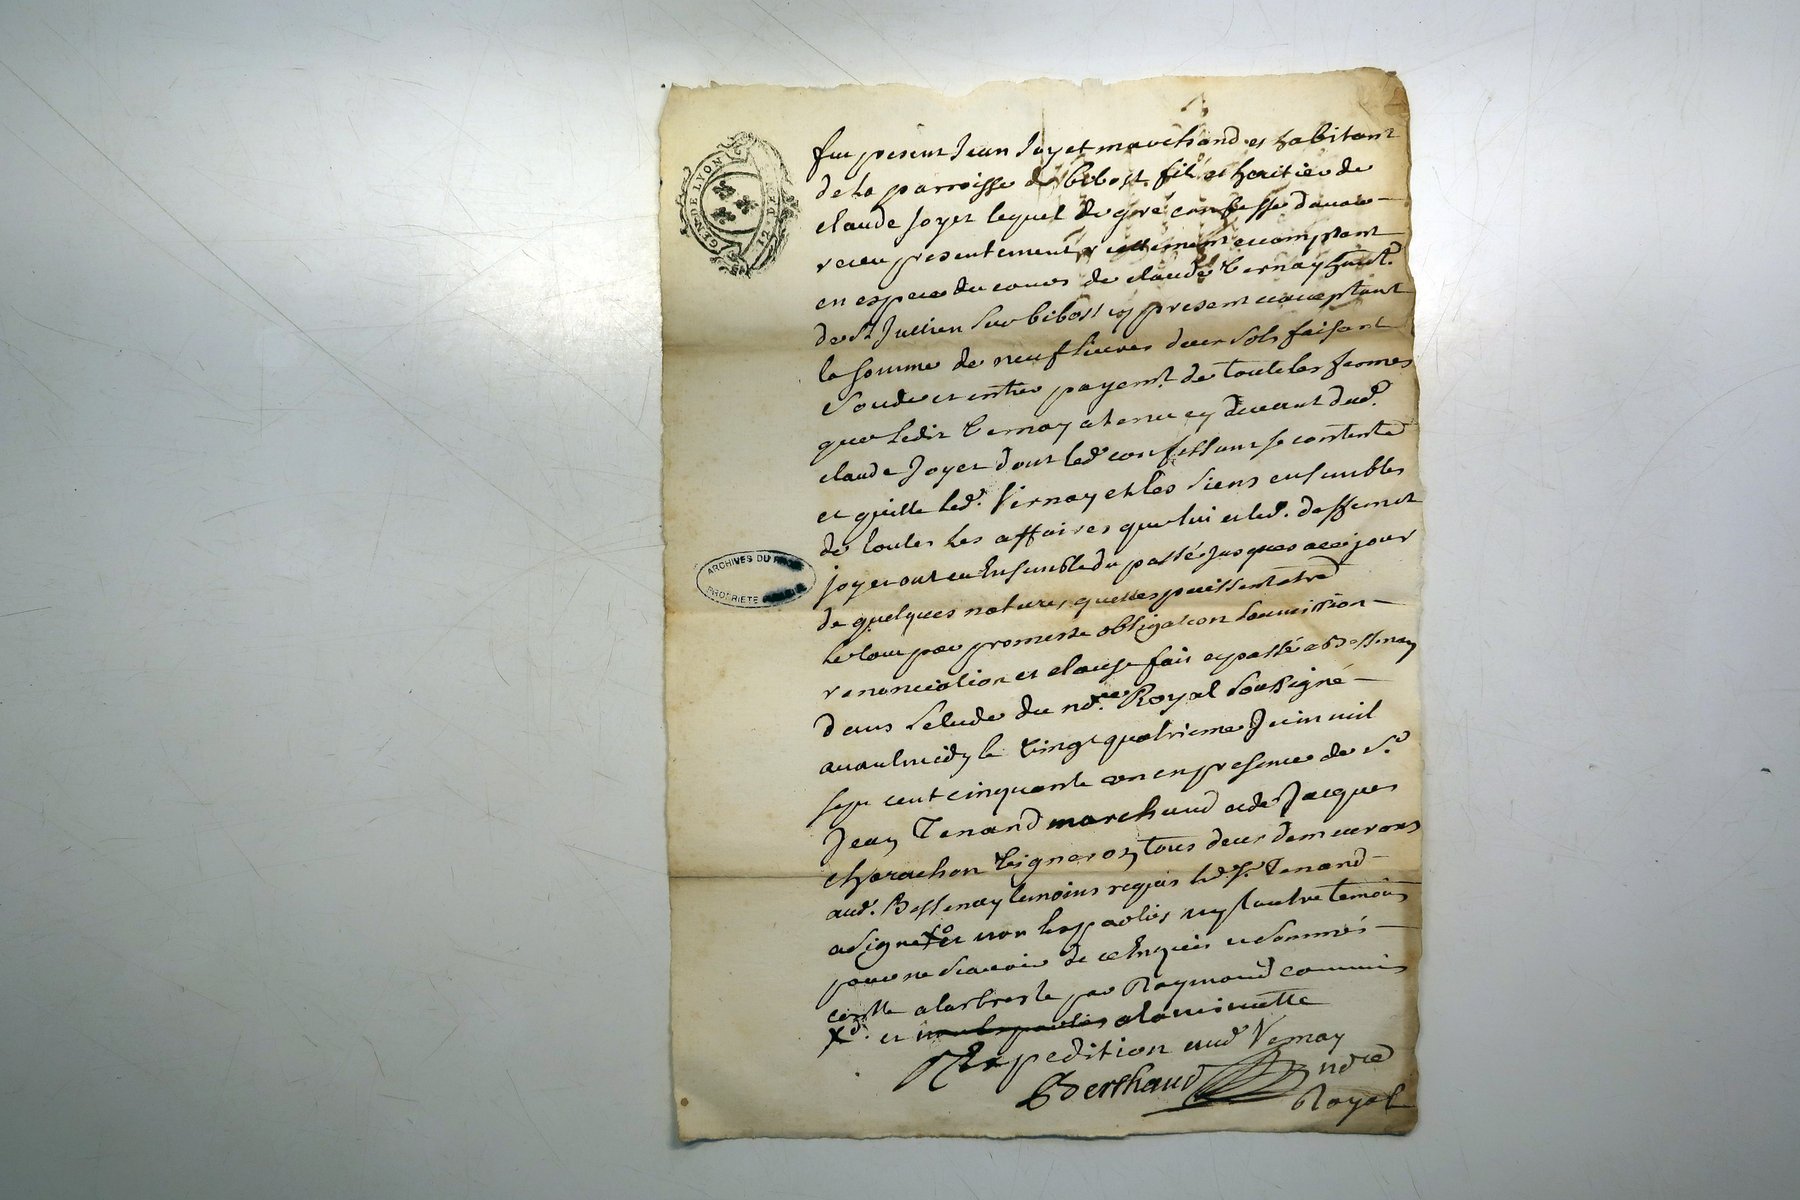 GEN DE LYON
12 DE
ARCHIVES DU
PROPRIETE
fut présent Jean Joyet marchand et habitant
de la parroisse de bibost fils et heritier de
claude Joyet lequel de gré confesse d'avoir
receu presentement reellement et comptant
en espece du cours de claude Vernay habt.
de St. Jullien sur bibost icy present et acceptant
la somme de neuf livres deux sols faisant
solde et entier payemt. de toutte les fermes
que ledit Vernay a tenu cy devant dud.
claude Joyet dont led. confessant se contente
et quitte led. Vernay et les siens ensembles
de toutes les affaires que lui et led. deffunct
joyet ont eu Ensemble du passé jusques a ce jour
de quelques natures quelles puissent etre
le tout par promesse obligation soumission
renonciation et clause fait et passé a Bessenay
dans l'etude du nore. Royal soussigné
avant midy le vingt quatrieme Juin mil
sept cent cinquante un en presence de sr.
Jean Tenand marchand et de Jacques
charachon Vigneron tous deux demeurans
aud. Bessenay temoins requis led. sr. Tenand
a signé et non les parties ny l'autre temoin
pour ne scavoir de ce Enquis et sommés
conttle a larbresle par Raymond commis
et non les parties a la minutte
Expedition aud. Vernay
Berthaud nore
Royal